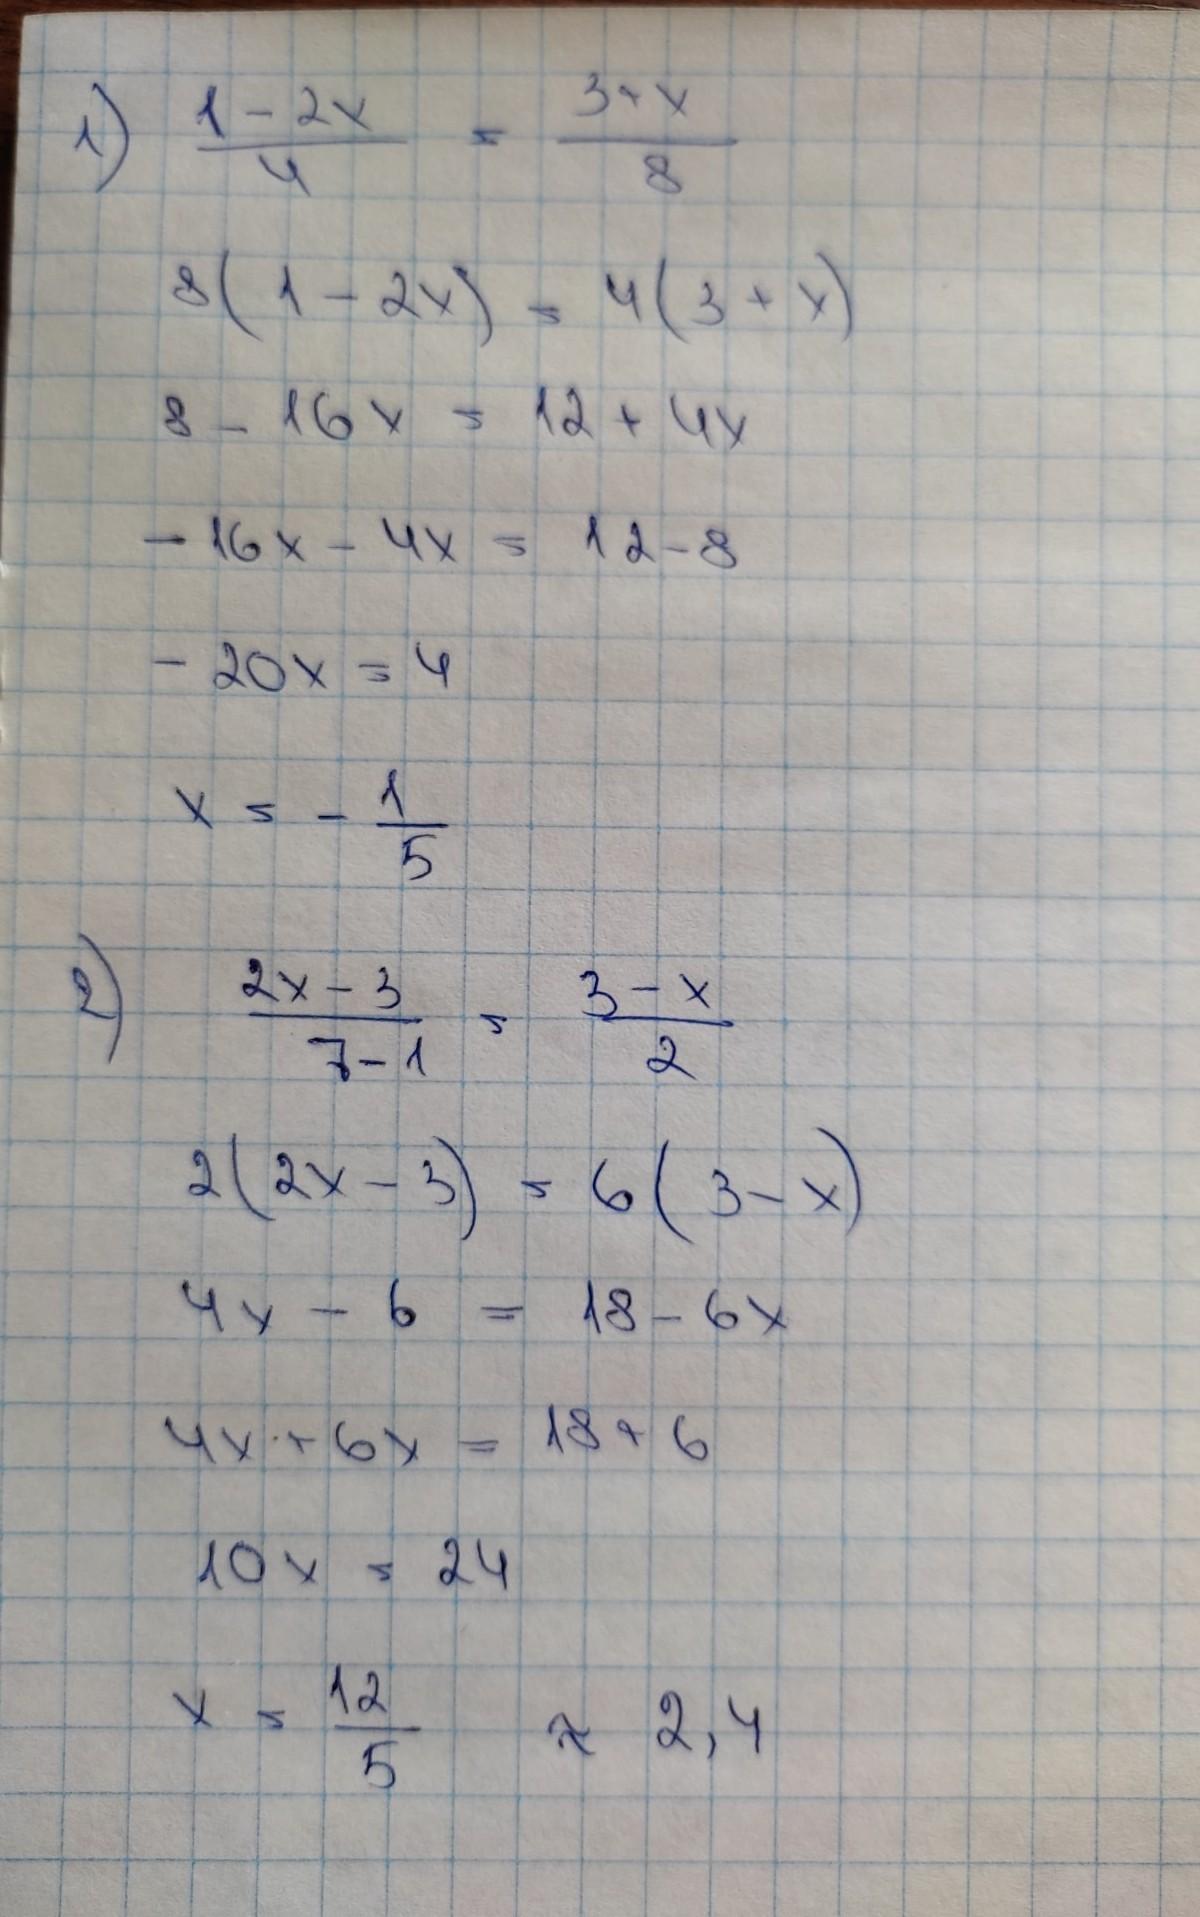 1) (1 - 2x)/4 = (3 + x)/8
8(1 - 2x) = 4(3 + x)
8 - 16x = 12 + 4x
- 16x - 4x = 12 - 8
- 20x = 4
x = - 1/5
2) (2x - 3)/(7 - 1) = (3 - x)/2
2(2x - 3) = 6(3 - x)
4x - 6 = 18 - 6x
4x + 6x = 18 + 6
10x = 24
x = 12/5 ≈ 2,4